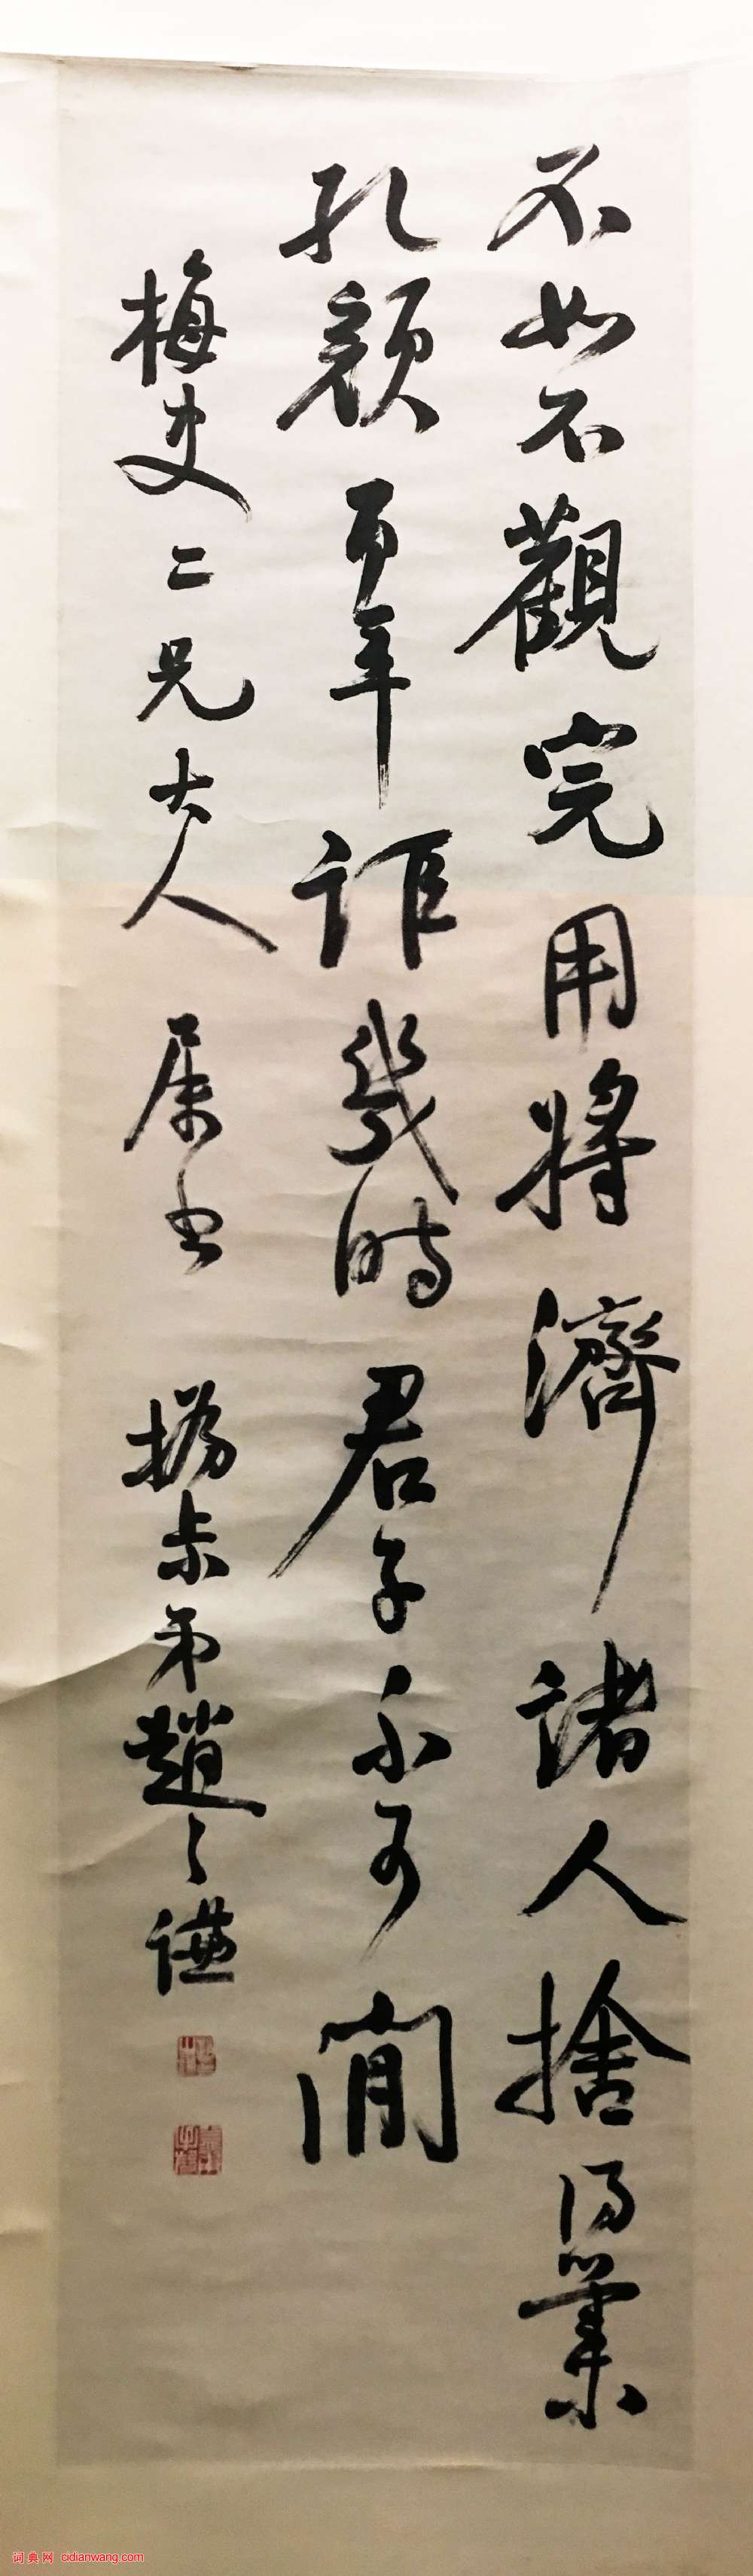 不如不觀完用將濟諸人捨得業
孔顏百年詎幾時君子不可閒
梅史二兄大人屬書 撝叔弟趙之謙
词典网 cidianwang.com